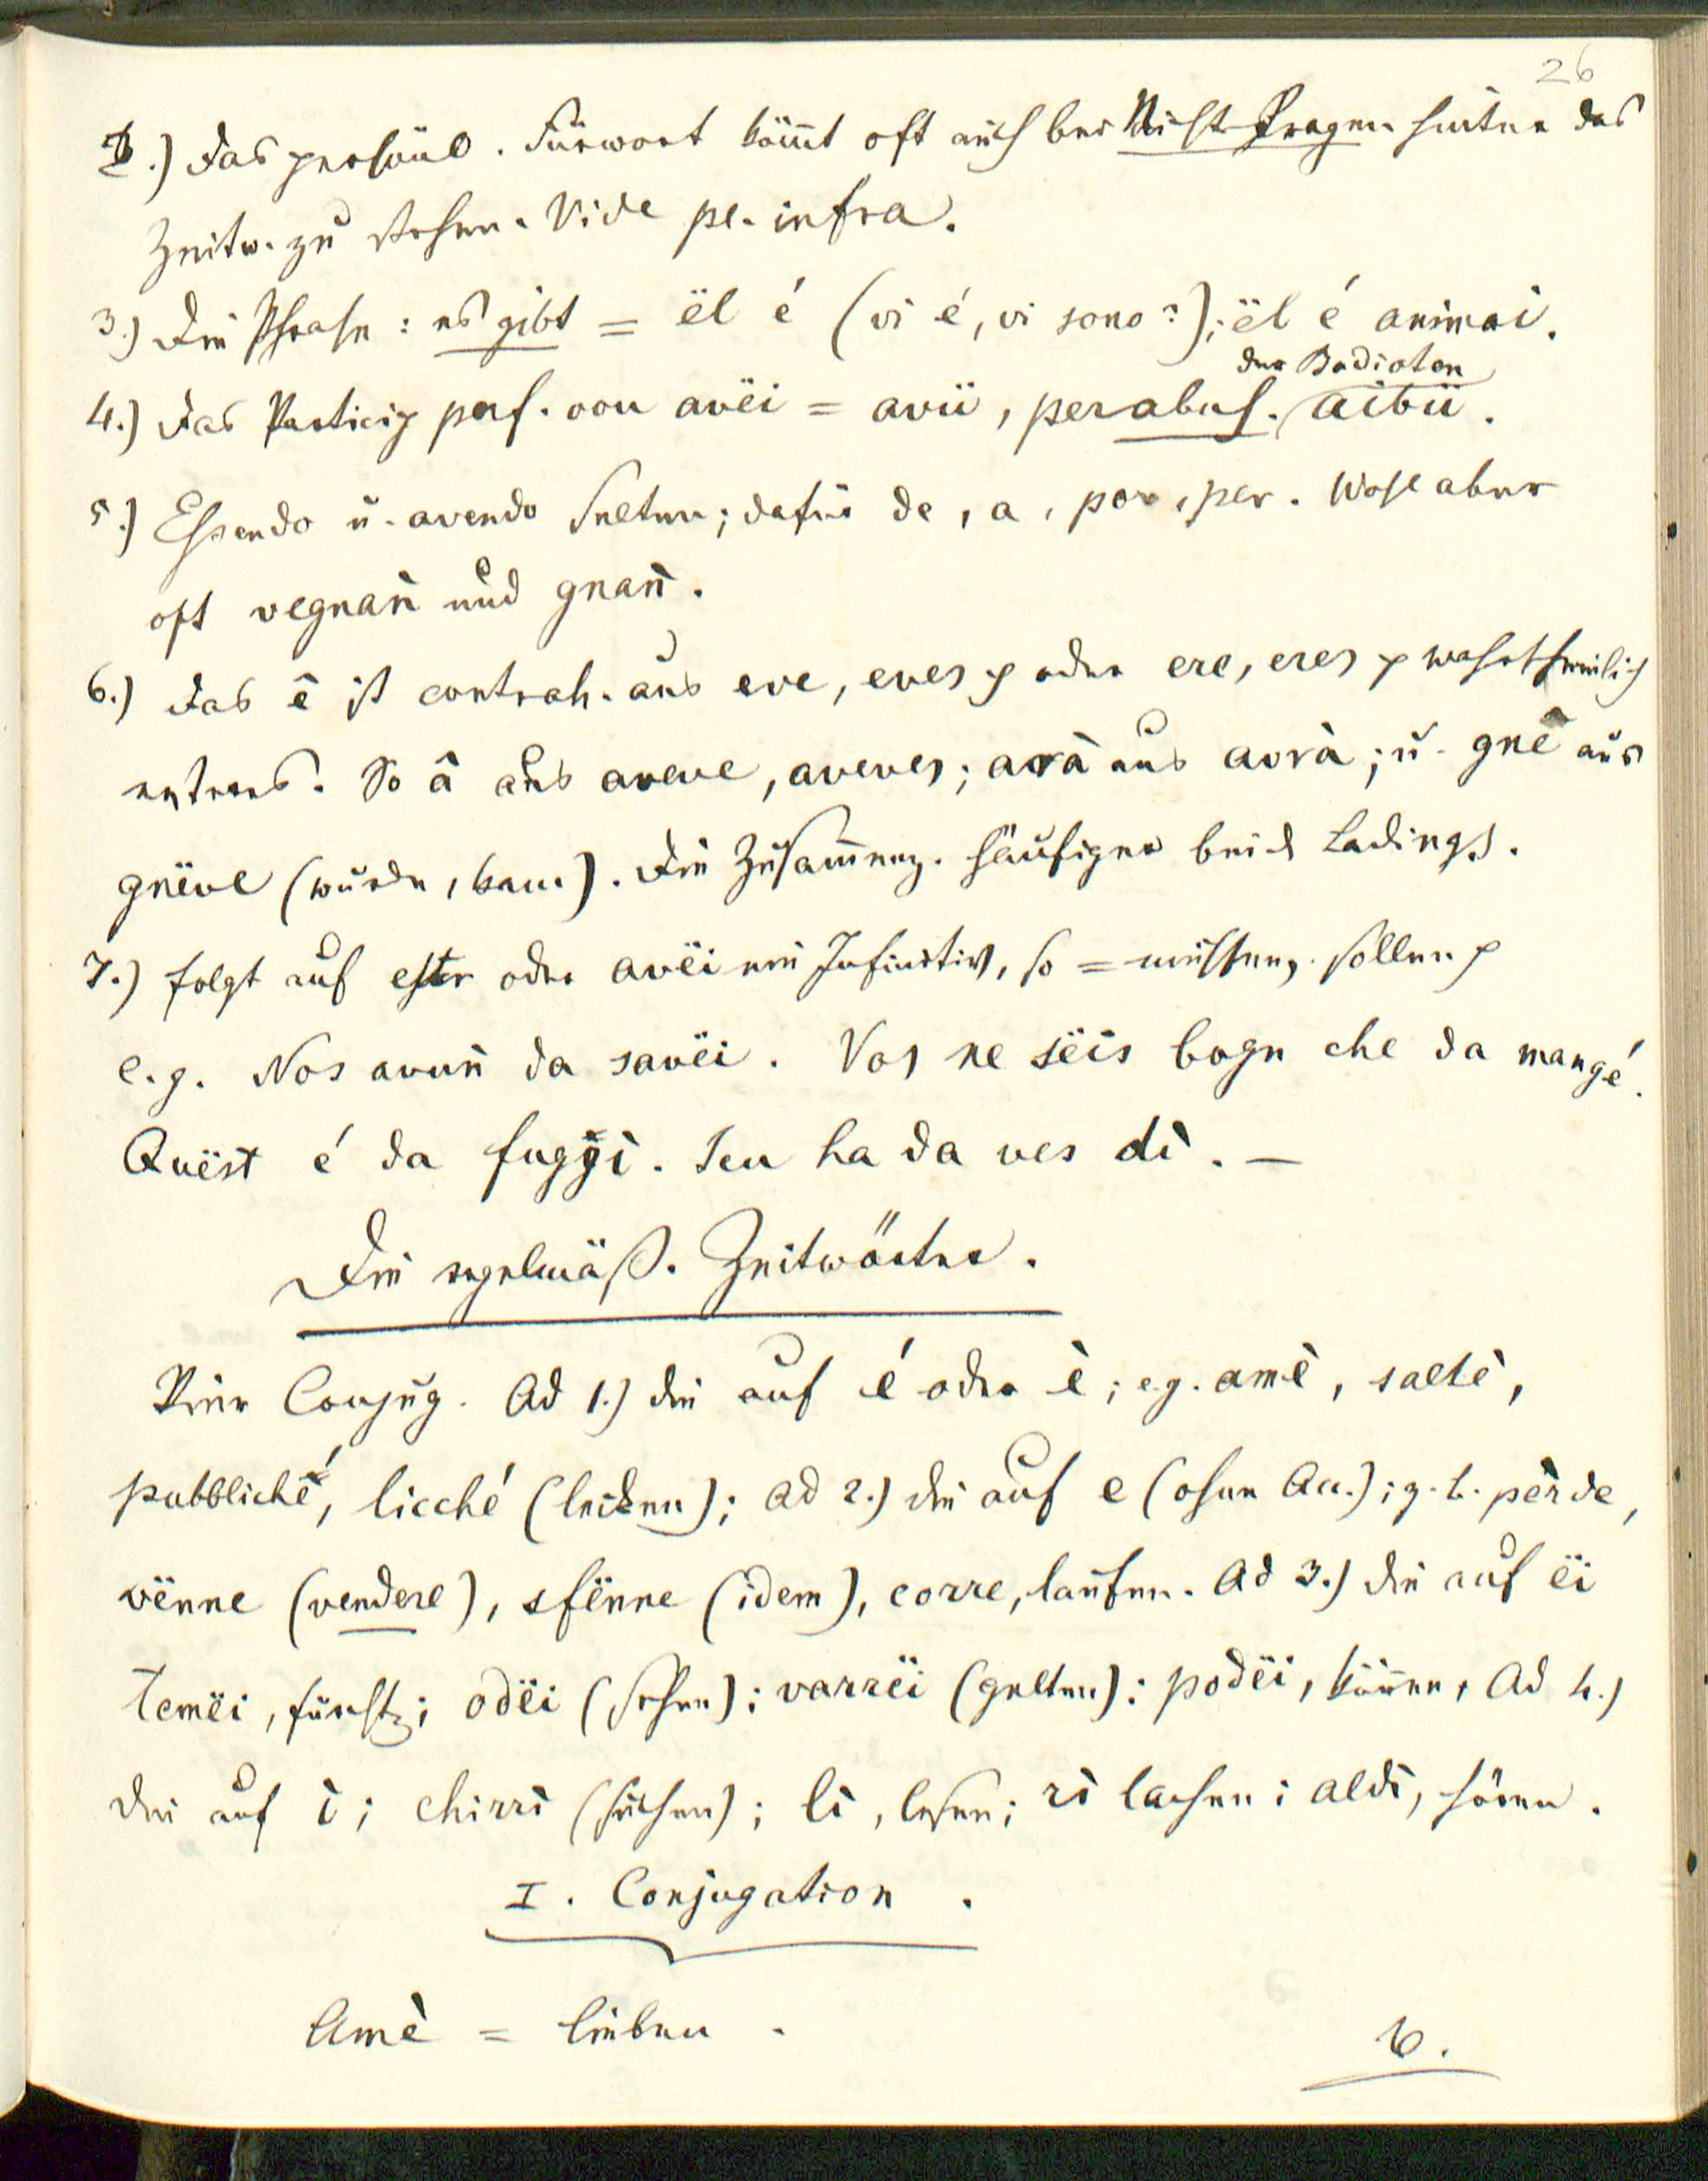 26
2.) Das persönl. Fürwort kömt oft auch bei Nicht-Fragen hinter das
Zeitw. zu stehen. Vide pe. infra.
3.) Die Phrase: es gibt = ël é (vi é, vi sono?); ël é animai.
der Badioten
4.) Das Particip perf. von avëi = avü, per abus. aibü.
5.) Essendo u. avendo selten; dafür de, a, por, per. Wohl aber
oft vegnañ und gnañ.
6.) Das ê ist contrah. aus eve, eves oder ere, eres wahrscheinlich
etwas. So â aus aveve, aveves; arà aus avrà; u. gnê aus
gnëve (wurde, kam). Die Zusammenz. häufiger bei d Ladings.
7.) folgt auf ester oder avëi ein Infinitiv, so = müssen, sollen
e.g. Nos avuñ da savëi. Vos ne sëis bogn che da mangé.
Quëst é da fuggì. Ieu ha da ves dì. —
Die regelmäß. Zeitwörter.
Vier Conjug. Ad 1.) die auf é oder è; e.g. amè, saltè,
pubbliché, licché (lecken); ad 2.) die auf e (ohne Acc.); z.b. pèrde,
vënne (vendere), sfënne (idem), corre, laufen. Ad 3.) die auf ëi
temëi, fürcht; odëi (sehen); varrëi (gelten); podëi, können, Ad 4.)
die auf ì; chirrì (suchen); lì, lesen; rì lachen; aldì, hören.
I. Conjugation.
Amè = lieben.